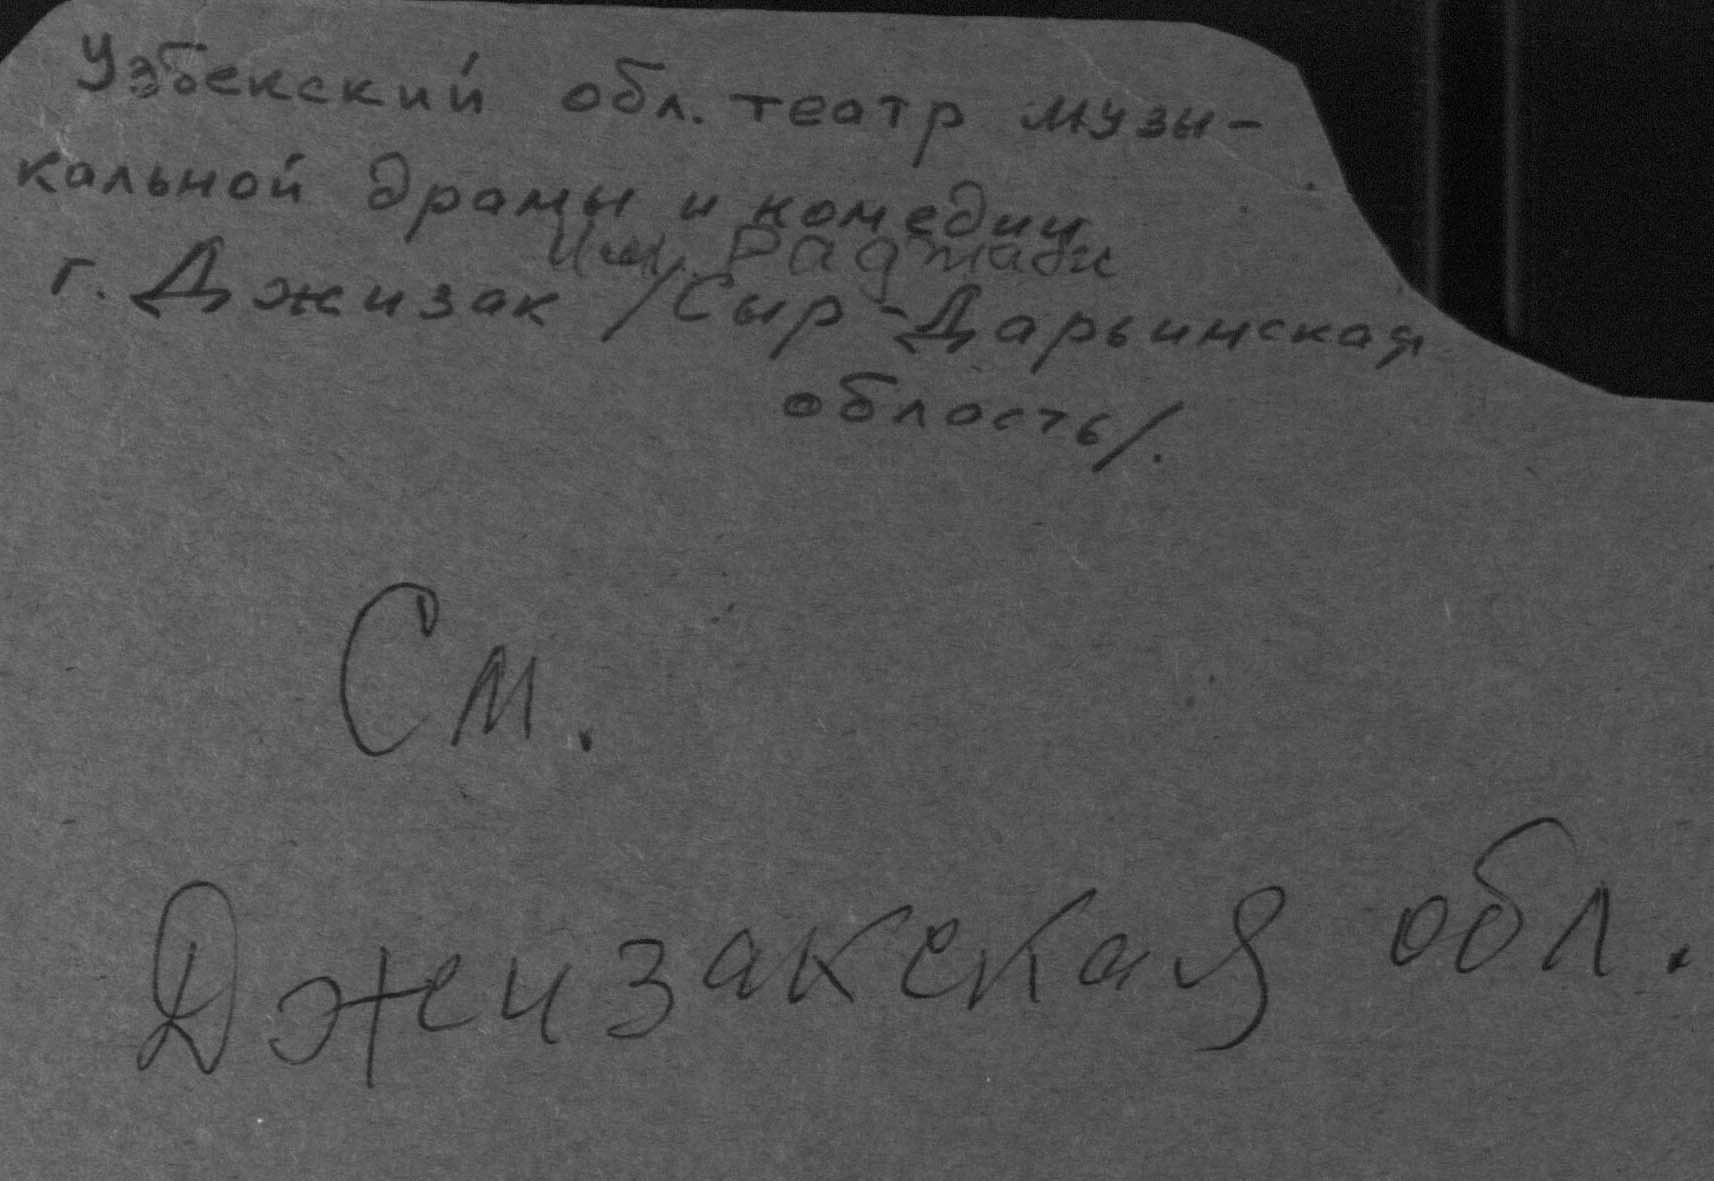 Узбекский обл. театр музы-
кальной драмы и комедии
им. Раджаби
г. Джизак /Сыр-Дарьинская
область/.
См.
Джизакская обл.